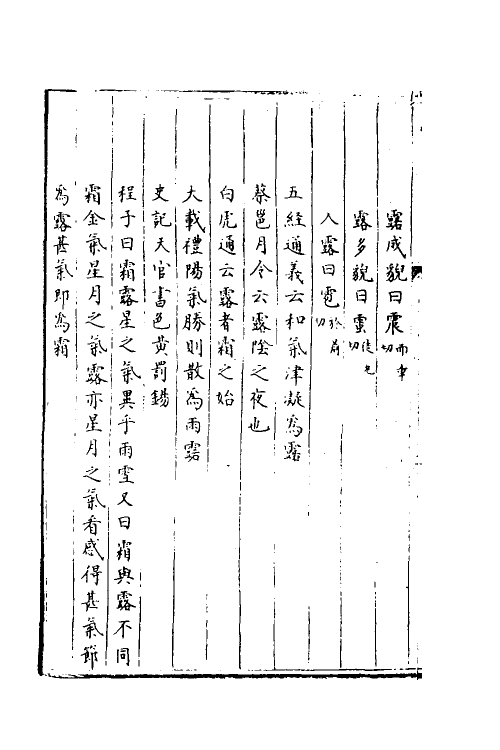 露成貌曰震而章切
露多貌曰䨦徒兄切
人露曰雹於前切
五經通義云和氣津凝為露
蔡邕月令云露陰之夜也
白虎通云露者霜之始
大載禮陽氣勝則散為雨露
史記天官書色黃罰鍚
程子曰霜露星之氣異乎雨雪又曰霜與露不同
霜金氣星月之氣露亦星月之氣看感得甚氣節
為露甚氣即為霜